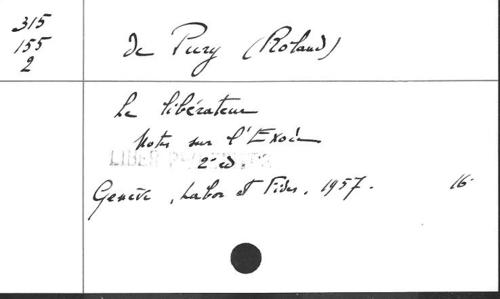 315
155
2
de Pury (Roland)
Le libérateur
Notes sur l'Exode
2e éd.
Genève, Labor et Fides, 1957. 16